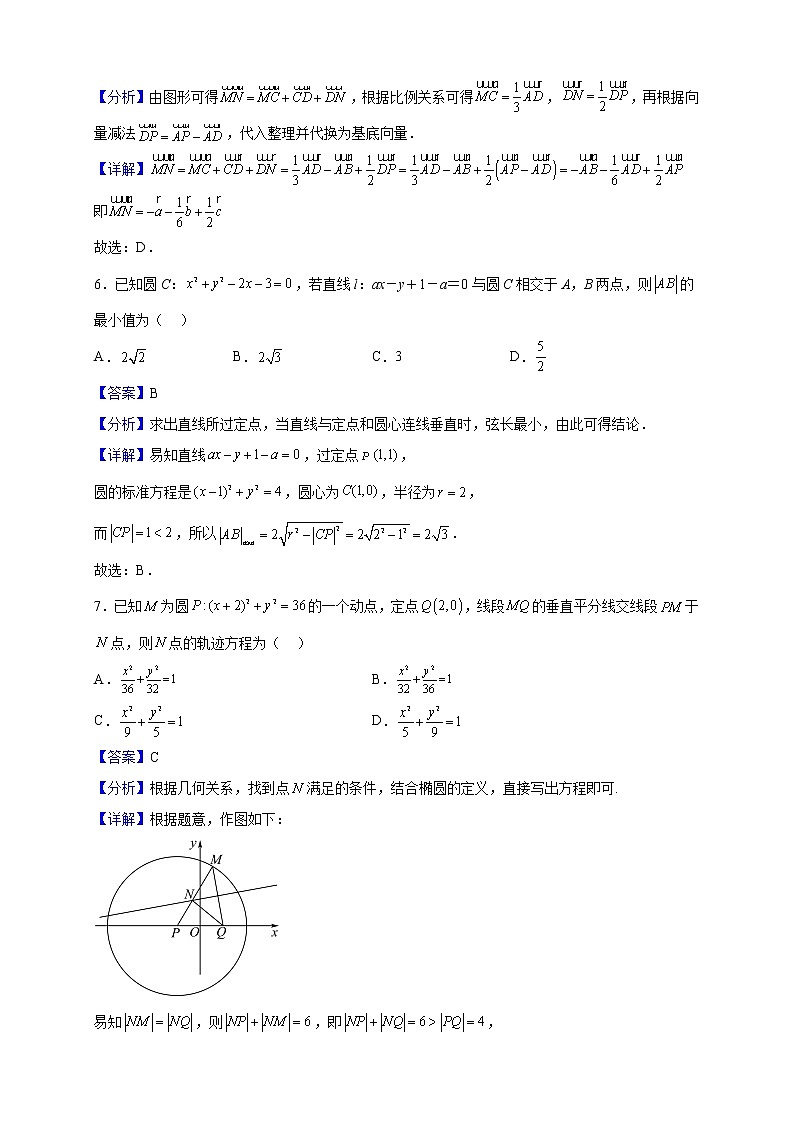 【分析】由图形可得MN=MC+CD+DN，根据比例关系可得MC=1/3AD，DN=1/2DP，再根据向
量减法DP=AP-AD，代入整理并代换为基底向量．
【详解】MN=MC+CD+DN=1/3AD-AB+1/2DP=1/3AD-AB+1/2(AP-AD)=-AB-1/6AD+1/2AP
即MN=-a-1/6b+1/2c
故选：D．
6．已知圆C：x²+y²-2x-3=0，若直线l：ax－y＋1－a＝0与圆C相交于A，B两点，则|AB|的
最小值为（ ）
A．2√2 B．2√3 C．3 D．5/2
【答案】B
【分析】求出直线所过定点，当直线与定点和圆心连线垂直时，弦长最小，由此可得结论．
【详解】易知直线ax-y+1-a=0，过定点P(1,1)，
圆的标准方程是(x-1)²+y²=4，圆心为C(1,0)，半径为r=2，
而|CP|=1<2，所以|AB|=2√(r²-|CP|²)=2√(2²-1²)=2√3．
故选：B．
7．已知M为圆P:(x+2)²+y²=36的一个动点，定点Q(2,0)，线段MQ的垂直平分线交线段PM于
N点，则N点的轨迹方程为（ ）
A．x²/36+y²/32=1 B．x²/32+y²/36=1
C．x²/9+y²/5=1 D．x²/5+y²/9=1
【答案】C
【分析】根据几何关系，找到点N满足的条件，结合椭圆的定义，直接写出方程即可.
【详解】根据题意，作图如下：
y
M
N
P O Q x
易知|NM|=|NQ|，则|NP|+|NM|=6，即|NP|+|NQ|=6>|PQ|=4，